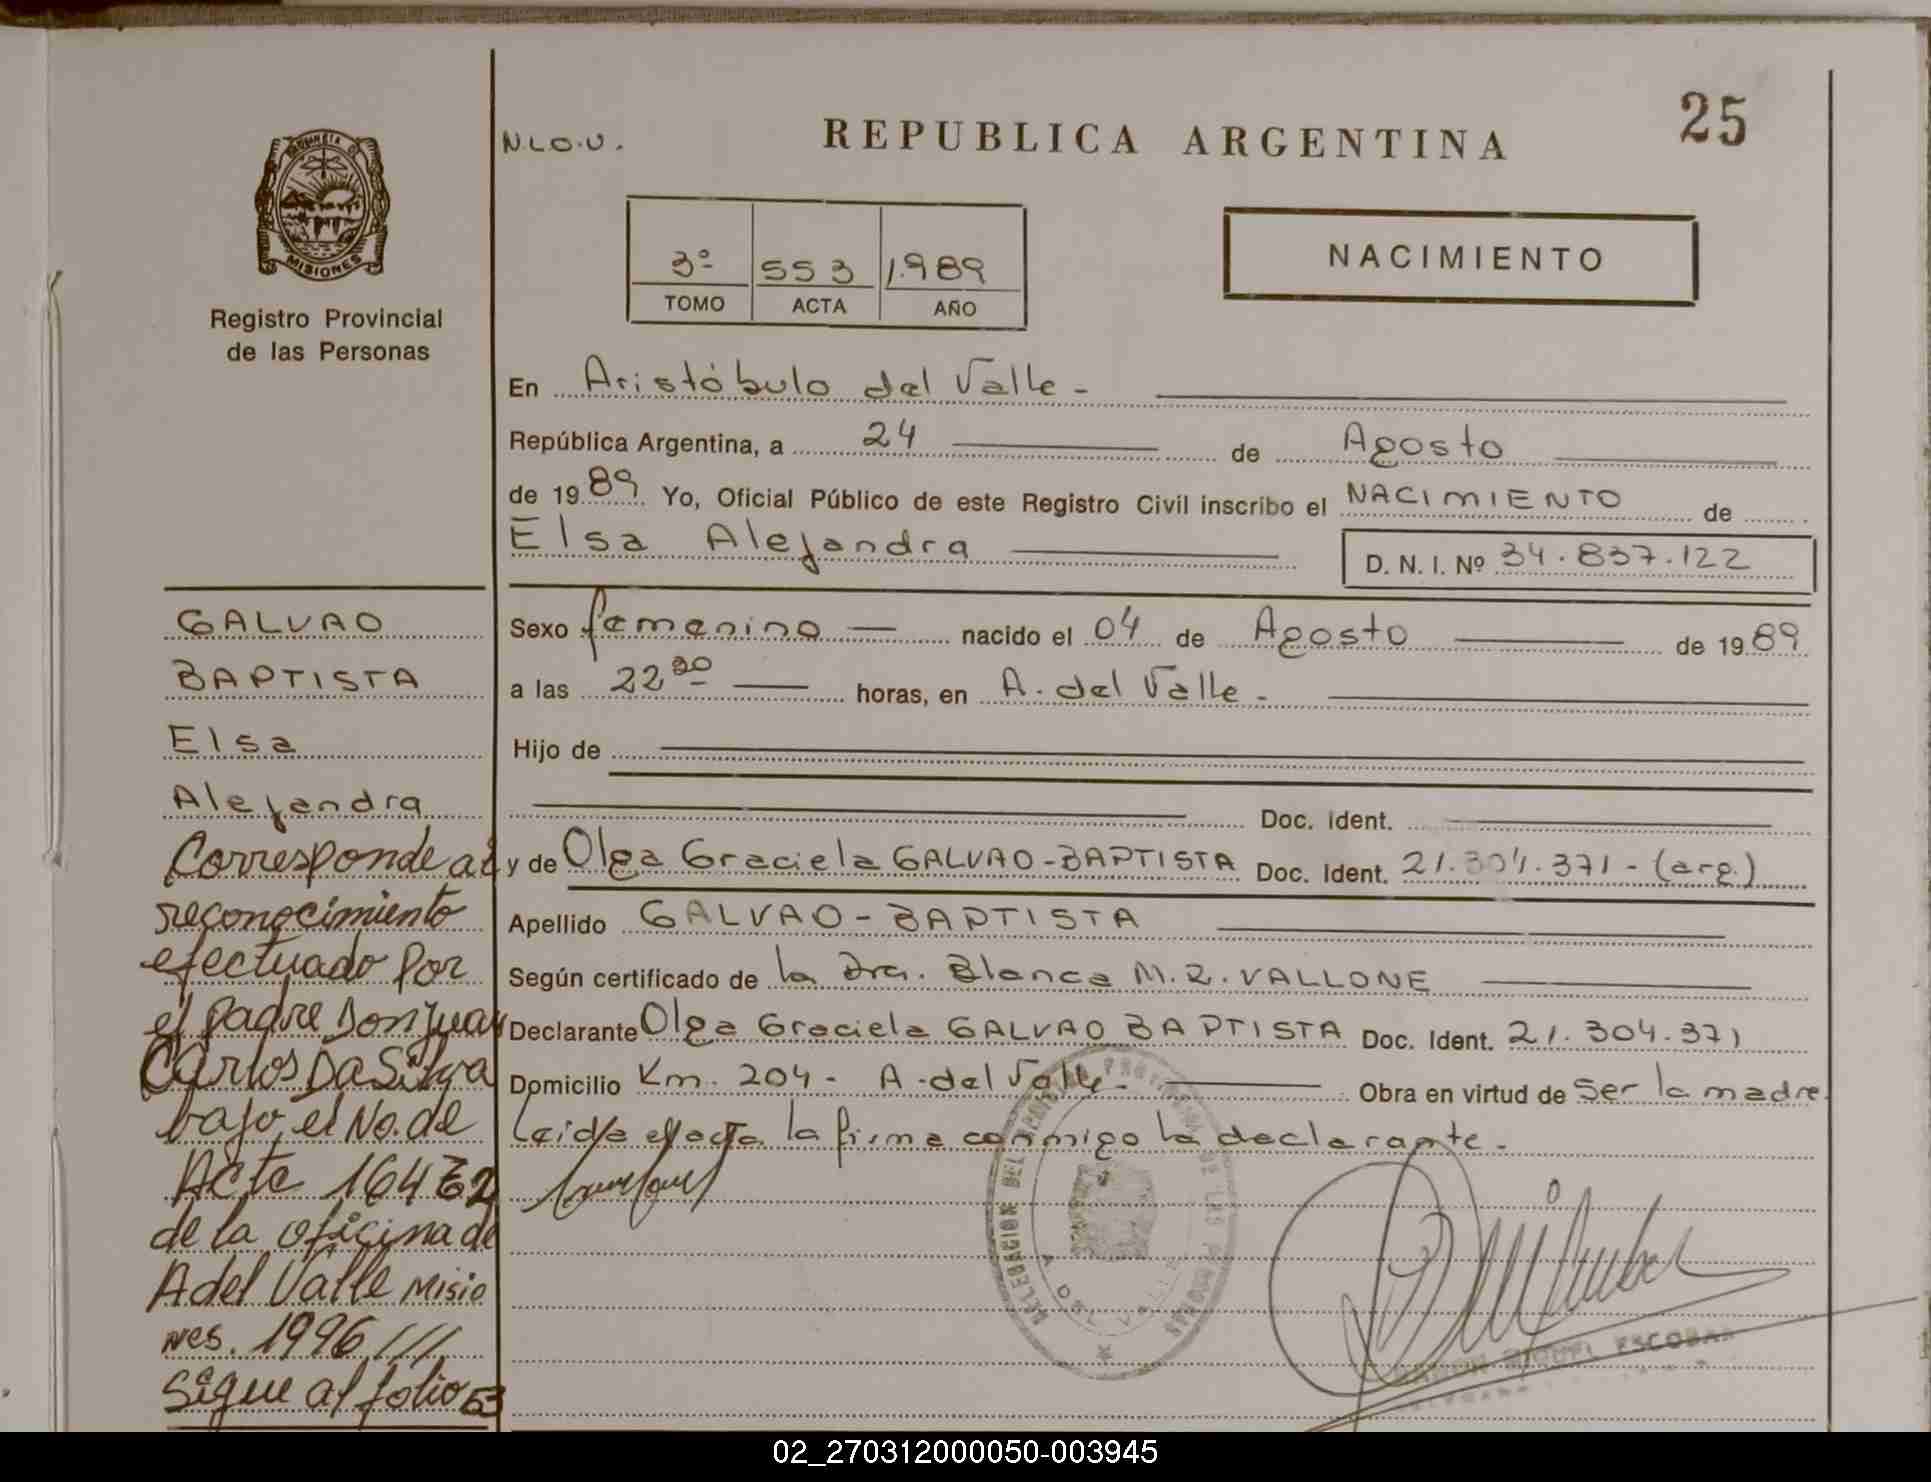 25
N.L.O.U.
REPUBLICA ARGENTINA
MISIONES
Registro Provincial
de las Personas
3º 553 1.989
TOMO ACTA AÑO
NACIMIENTO
En Aristóbulo del Valle -
República Argentina, a 24 de Agosto
de 1989 Yo, Oficial Público de este Registro Civil inscribo el NACIMIENTO de
Elsa Alejandra
D. N. I. Nº 34.837.122
GALVAO
BAPTISTA
Elsa
Alejandra
Corresponde al
reconocimiento
efectuado por
el padre Don Juan
Carlos Da Silva
bajo el No. de
Acta
de la oficina de
A del Valle Misio
nes. 1996 ///
Sigue al folio 53
Sexo femenino nacido el 04 de Agosto de 1989
a las 22 horas, en A. del Valle -
Hijo de
Doc. Ident.
y de Olga Graciela GALVAO-BAPTISTA Doc. Ident. 21.304.371 - (arg.)
Apellido GALVAO - BAPTISTA
Según certificado de la Dra. Blanca M. R. VALLONE
Declarante Olga Graciela GALVAO BAPTISTA Doc. Ident. 21.304.371
Domicilio Km. 204 - A. del Valle - Obra en virtud de ser la madre.
Leida el acta la firma conmigo la declarante.
DELEGACION DEL REGISTRO PROVINCIAL DE LAS PERSONAS
A. DEL VALLE
ESCOBAR
02_270312000050-003945